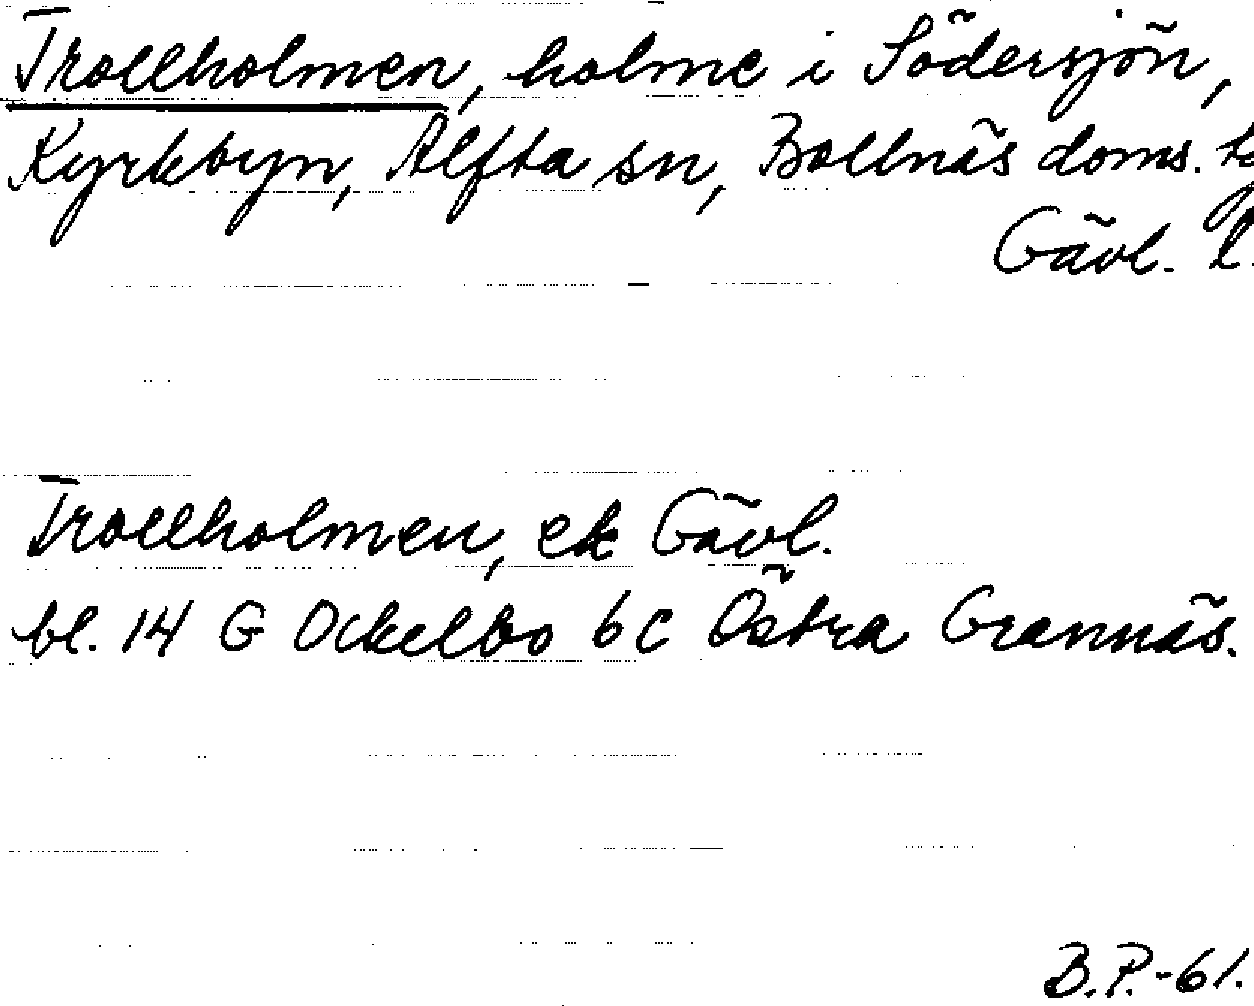 Trollholmen, holme i Södersjön,
Kyrkbyn, Alfta sn, Bollnäs doms.
Gävl. l.
Trollholmen, ek Gävl.
bl. 14 G Ockelbo 6c Östra Grannäs.
B.P.-61.